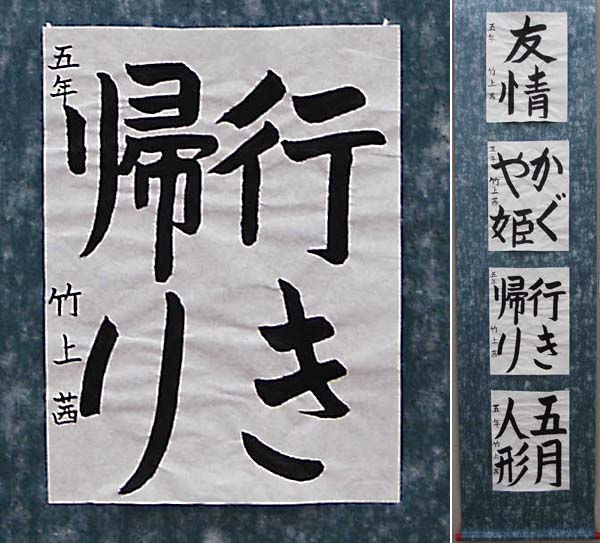 行き
帰り
五年 竹上茜
友情
五年 竹上茜
かぐ
や姫
五年 竹上茜
行き
帰り
五年 竹上茜
五月
人形
五年 竹上茜